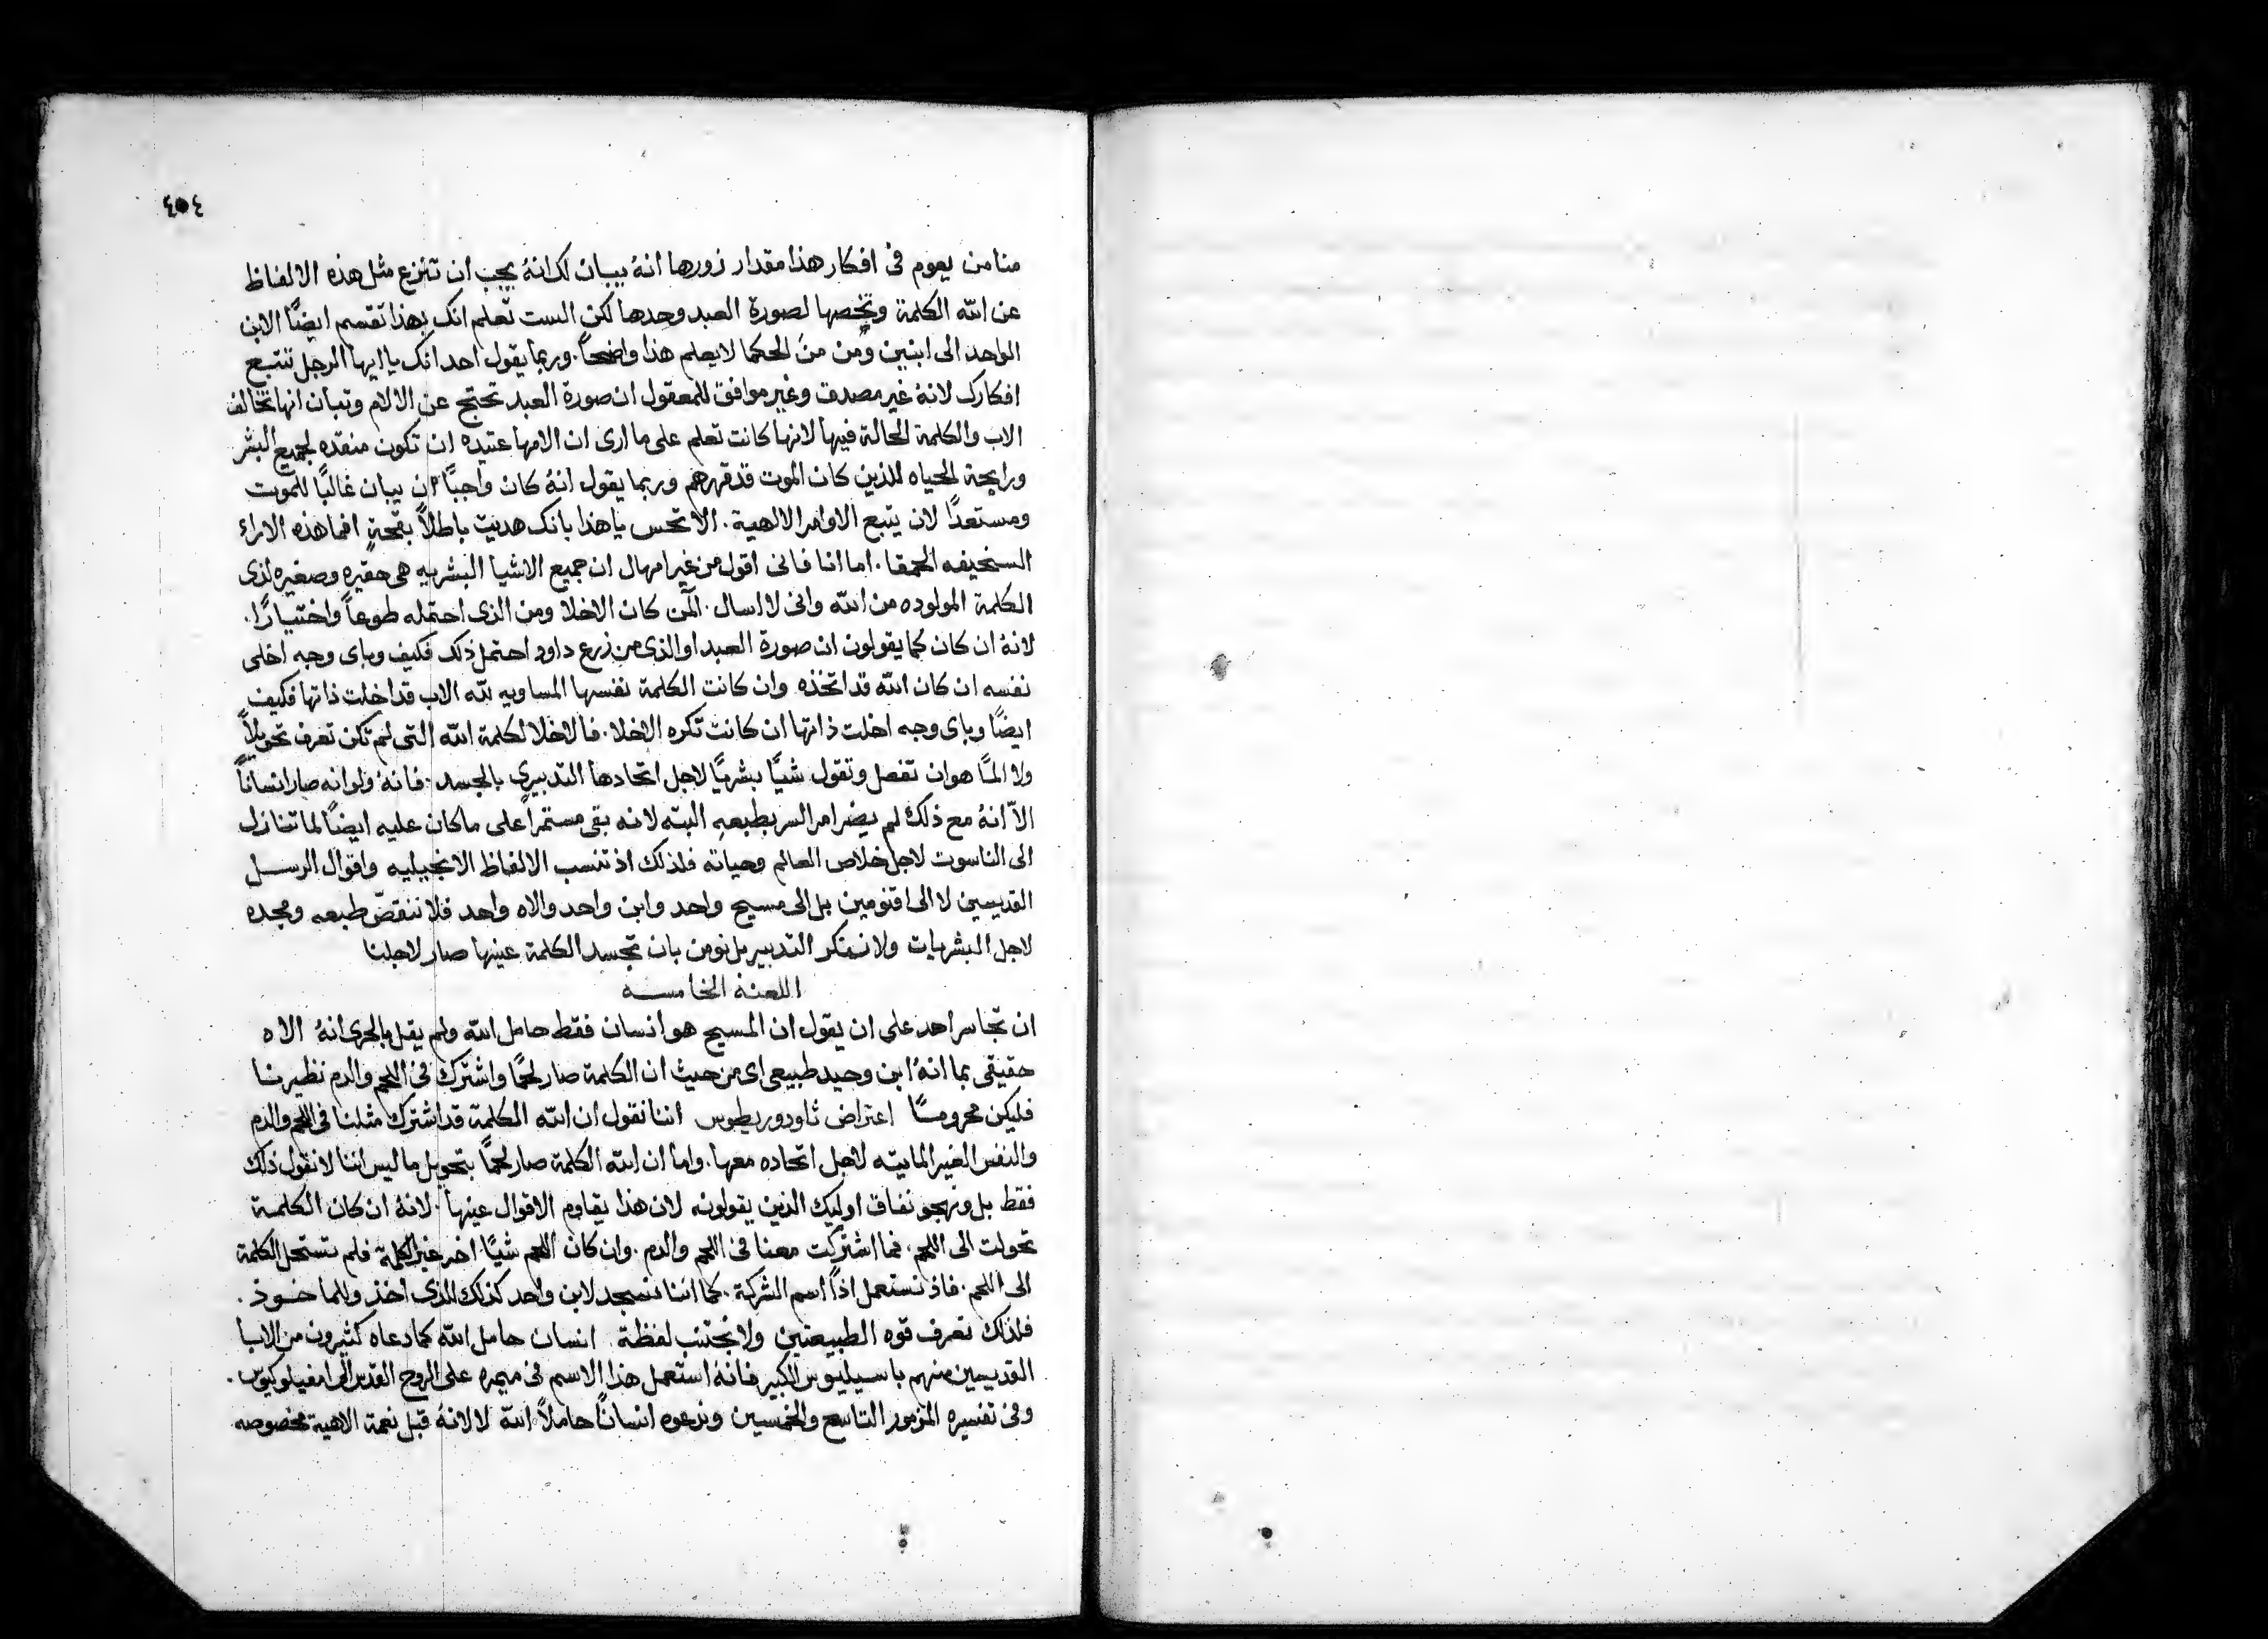 ٤٥٤
منا من يعوم في افكار هذا مقدار زورها انهُ يبان لك انهُ يجب ان تنزع مثل هذه الالفاظ
عن الله الكلمة وتخصها لصورة العبد وحدها لكن الست تعلم انك بهذا تقسم ايضًا الابن
الواحد الى ابنين ومن منَ الحكما لا يعلم هذا واضحاً. وربما يقول احد انك يا ايها الرجل تتبع
افكارك لانهُ غير مصدق وغير موافق للمعقول ان صورة العبد تحتج عن الالام وتبان انها تخالف
الاب والكلمة الحالة فيها لانها كانت تعلم على ما ارى ان الامها عتيده ان تكون منقده لجميع البشر
ورابحة الحياه للذين كان الموت قد قهرهم وربما يقول انهُ كان واجبًا ان يبان غالبًا للموت
ومستعدًا لان يتبع الاوامر الالهية. الا تحس يا هذا بانك هديت باطلاً بقحةٍ افما هذه الاراء
السخيفه الحمقا. اما انا فاني اقول من غير امهال ان جميع الاشيا البشريه هي حقيره وصغيره لذى
الكلمة المولوده من الله واني لا اسال. المن كان الاخلا ومن الذي احتمله طوعاً واختيارًا.
لانهُ ان كان كما يقولون ان صورة العبد او الذي من زرع داود احتمل ذلك فكيف وباى وجه اخلى
نفسه ان كان الله قد اتخذه وان كانت الكلمة نفسها المساويه لله الاب قد اخلت ذاتها فكيف
ايضًا وباى وجه اخلت ذاتها ان كانت تكره الاخلا. فالاخلا لكلمة الله التي لم تكن تعرف تحويلاً
ولا المًا هو ان تفعل وتقول شيًا بشريًا لاجل اتحادها التدبيري بالجسد. فانهُ ولو انه صار انسانًا
الاّ انهُ مع ذلك لم يضر امر السر بطبعهِ البته لانه بقى مستمراً على ما كان عليه ايضًا لما تنازل
الى الناسوت لاجل خلاص العالم وحياته فلذلك اذ تنسب الالفاظ الانجيليه واقوال الرسل
القديسين لا الى اقنومين بل الى مسيح واحد وابن واحد والاه واحد فلا ننقض طبعه ومجده
لاجل البشريات ولا ننكر التدبير بل نومن بان تجسد الكلمة عينها صار لاجلنا
اللعنه الخامسه
ان تجاسر احد على ان يقول ان المسيح هو انسان فقط حامل الله ولم يقل بالحرى انهُ الاه
حقيقي بما انهُ ابن وحيد طبيعي اى من حيث ان الكلمة صار لحمًا واشترك في اللحم والدم نظيرنا
فليكن محرومًا اعتراض ثاودوريطوس اننا نقول ان الله الكلمة قد اشترك مثلنا في اللحم والدم
والنفس الغير المايته لاجل اتحاده معها. واما ان الله الكلمة صار لحمًا بتحويل ما ليس اننا لا نقول ذلك
فقط بل ونهجو نفاق اوليك الذين يقولونه لان هذا يقاوم الاقوال عينها. لانهُ ان كان الكلمة
تحولت الى اللحم. فما اشتركت معنا في اللحم والدم. وان كان اللحم شيًا اخر غير الكلمة فلم تستحل الكلمة
الى اللحم. فاذ نستعمل اذاً اسم الشركة. كما اننا نسجد لابن واحد كذلك الذى اخذ وللماخوذ.
فلذلك نعرف قوه الطبيعتين ولا نجتنب لفظة انسان حامل الله كما دعاه كثيرون من الابا
القديسين منهم باسيليوس الكبير فانهُ استعمل هذا الاسم في ميمره على الروح القدس الى امفيلوكيوس.
وفي تفسيره المزمور التاسع والخمسين وندعوه انسانًا حاملاً الله لا لانهُ قبل نعمة الاهية مخصوصه